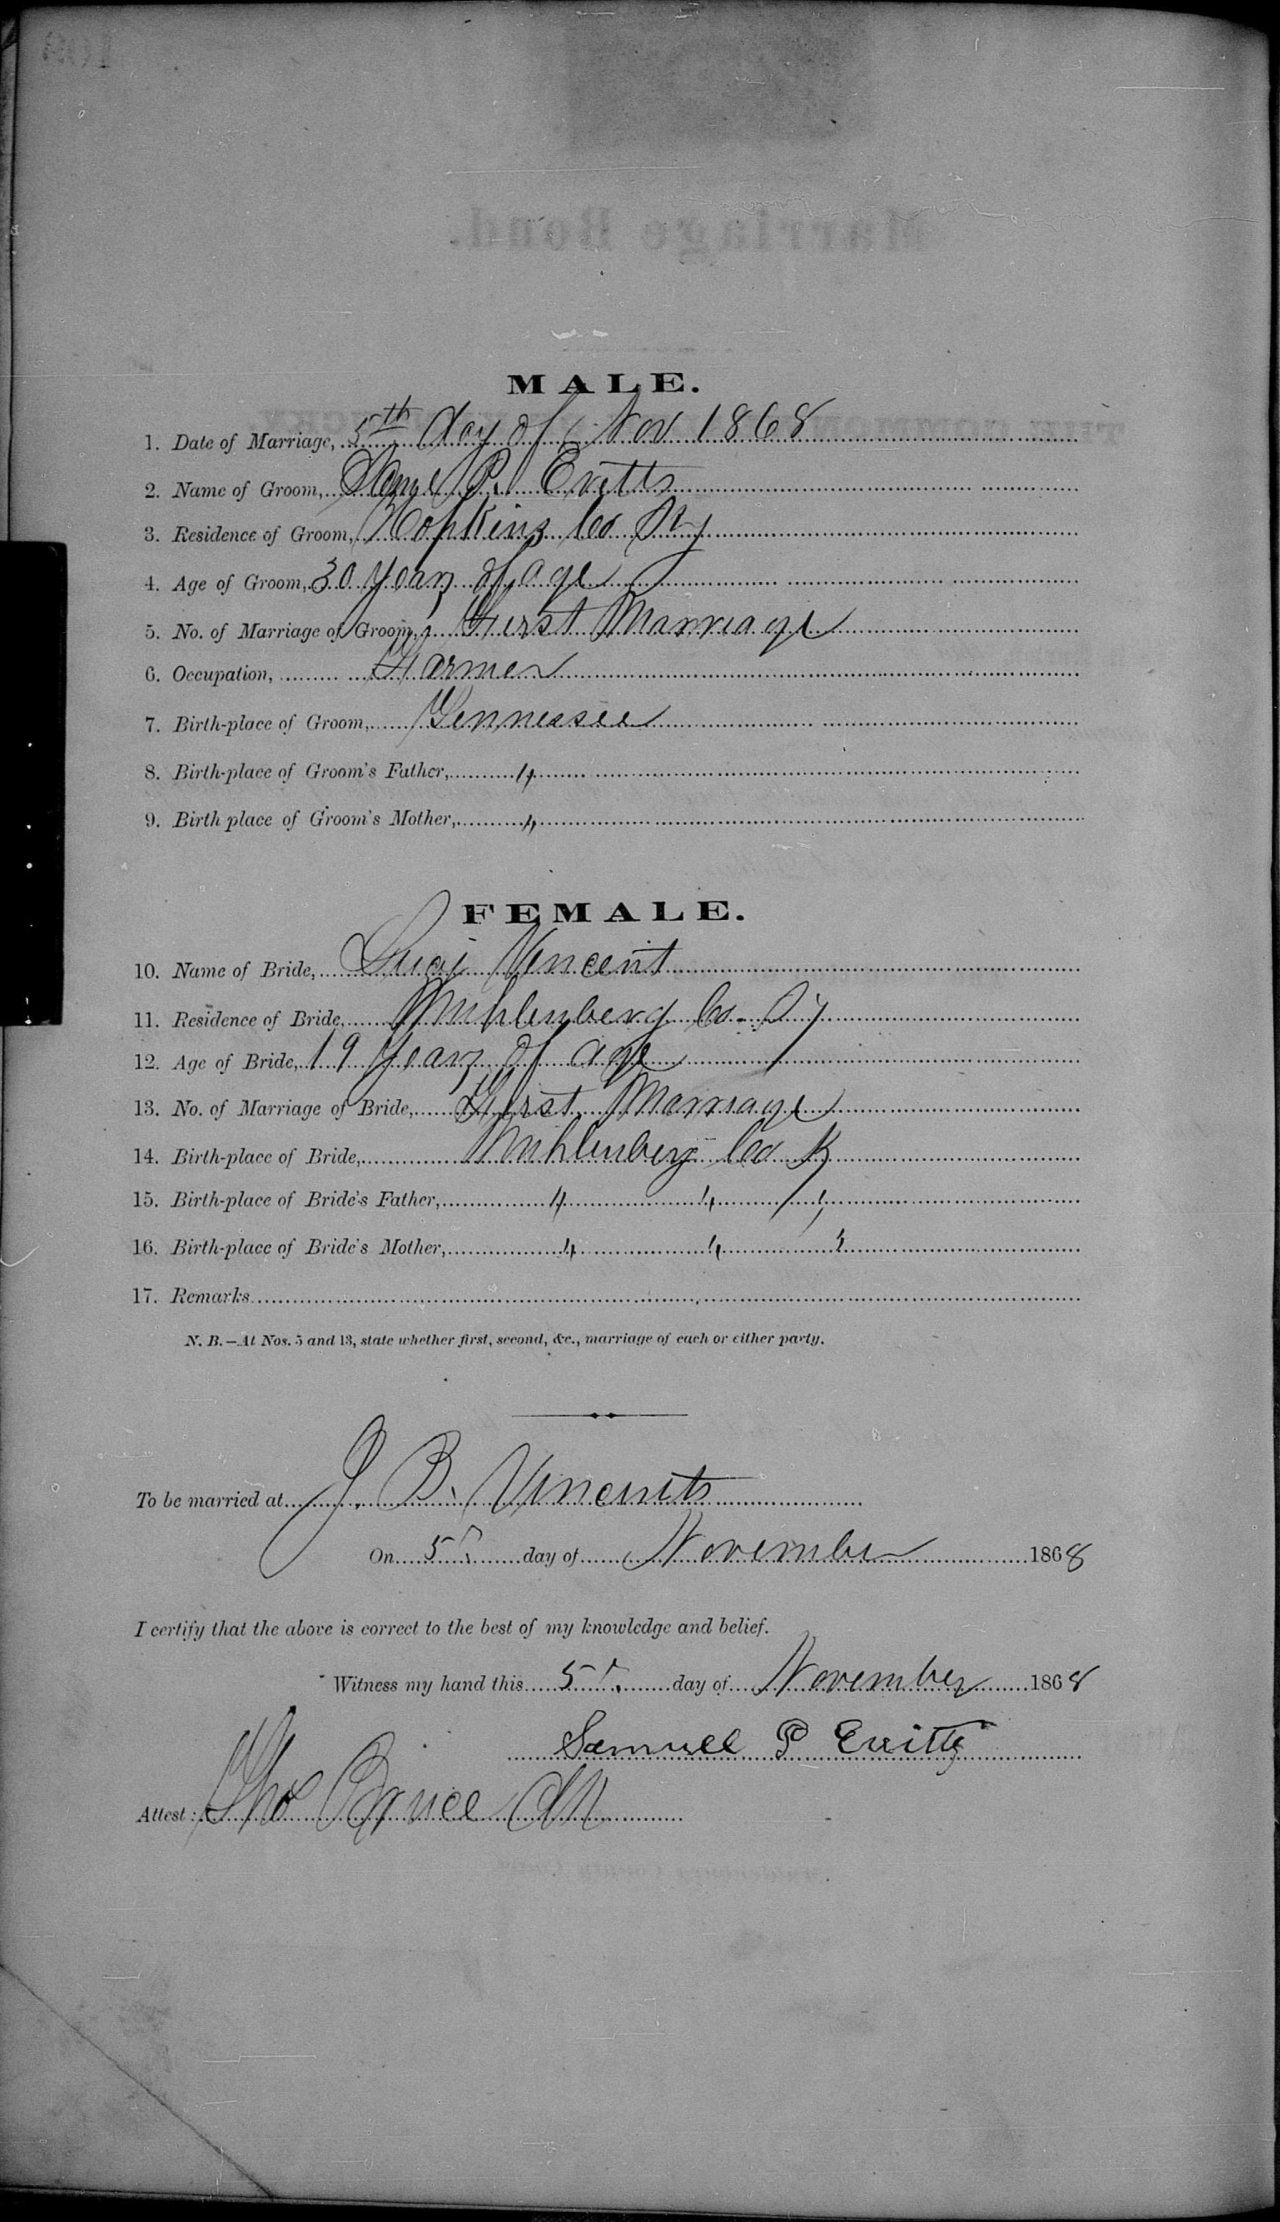 MALE.
1. Date of Marriage, 5th day of Nov 1868
2. Name of Groom, P. Evitts
3. Residence of Groom, Hopkins Co Ky
4. Age of Groom, 30 years of age
5. No. of Marriage of Groom, First Marriage
6. Occupation, Farmer
7. Birth-place of Groom, Tennessee
8. Birth-place of Groom's Father, "
9. Birth place of Groom's Mother, "
FEMALE.
10. Name of Bride, Vincent
11. Residence of Bride, Muhlenberg Co. Ky
12. Age of Bride, 19 years of age
13. No. of Marriage of Bride, First Marriage
14. Birth-place of Bride, Muhlenberg Co Ky
15. Birth-place of Bride's Father, " " "
16. Birth-place of Bride's Mother, " " "
17. Remarks
N. B.—At Nos. 5 and 13, state whether first, second, &c., marriage of each or either party.
To be married at J. B. Vincents
On 5" day of November 1868
I certify that the above is correct to the best of my knowledge and belief.
Witness my hand this 5" day of November 1868
Samuel P Evitts
Attest: Tho Bruce Clk